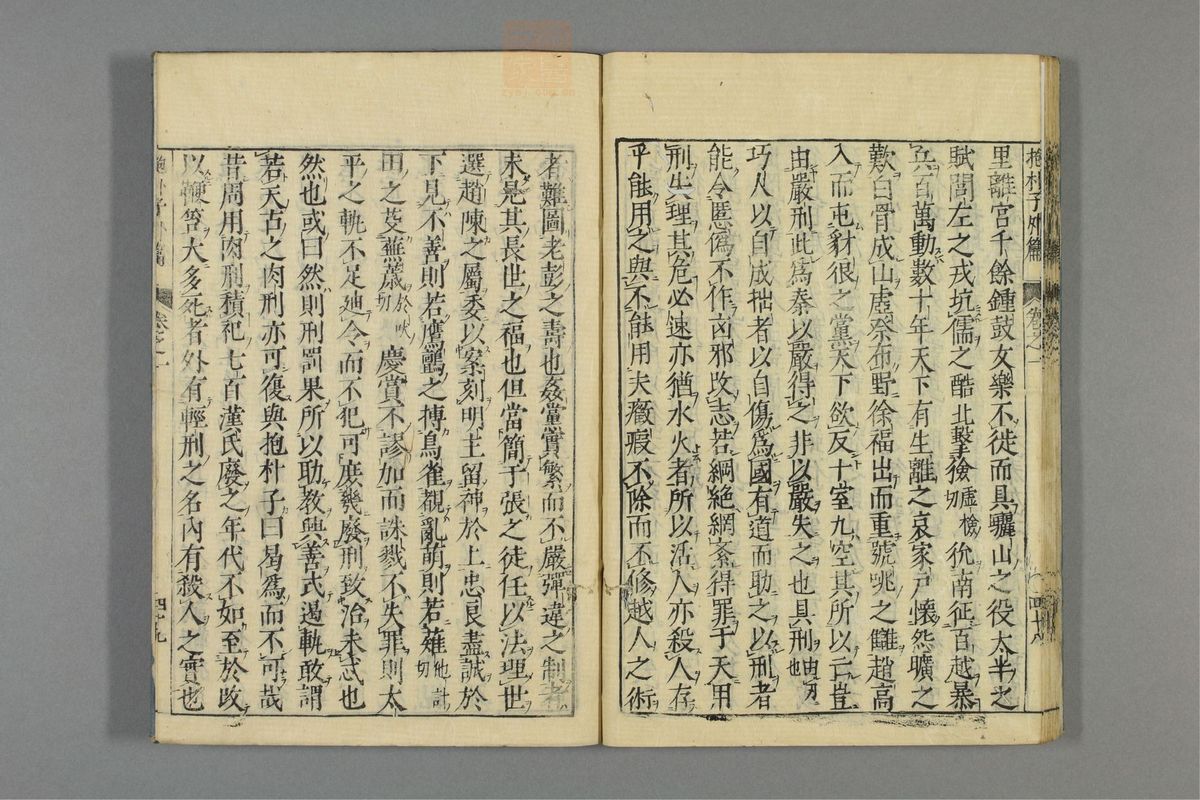 抱朴子外篇 卷之一 四十八
里離宮千餘鍾鼓女樂不徙而具驪山之役太半之
賦閭左之戍坑儒之酷北擊獫虛檢切狁南征百越暴
兵百萬動數十年天下有生離之哀家戶懷怨曠之
歎白骨成山虛祭布野徐福出而重號咷之讎趙高
入而屯豺狼之黨天下欲反十室九空其所以亡豈
由嚴刑此爲秦以嚴得之非以嚴失之也且刑由刃也
巧人以自成拙者以自傷爲國有道而助之以刑者
能令慝僞不作凶邪改志若綱絕網紊得罪于天用
刑失理其危必速亦猶水火者所以活人亦殺人存
乎能用之與不能用夫癥瘕不除而不修越人之術
者難圖老彭之壽也姦黨實繁而不嚴彈違之制者
未見其長世之福也但當簡于張之徒任以法理世
選趙陳之屬委以案刻明主留神於上忠良盡誠於
下見不善則若鷹鸇之搏鳥雀覩亂萌則若薙他計切
田之芟蕪薉於吠切慶賞不謬加而誅戮不失罪則太
平之軌不足迪令而不犯可庶幾廢刑致治未忒也
然也或曰然則刑罰果所以助教興善式遏軌敢謂
若天古之肉刑亦可復與抱朴子曰曷爲而不可哉
昔周用肉刑積祀七百漢氏廢之年代不如至於改
以鞭笞大多死者外有輕刑之名內有殺人之實也
卷之一 四十九